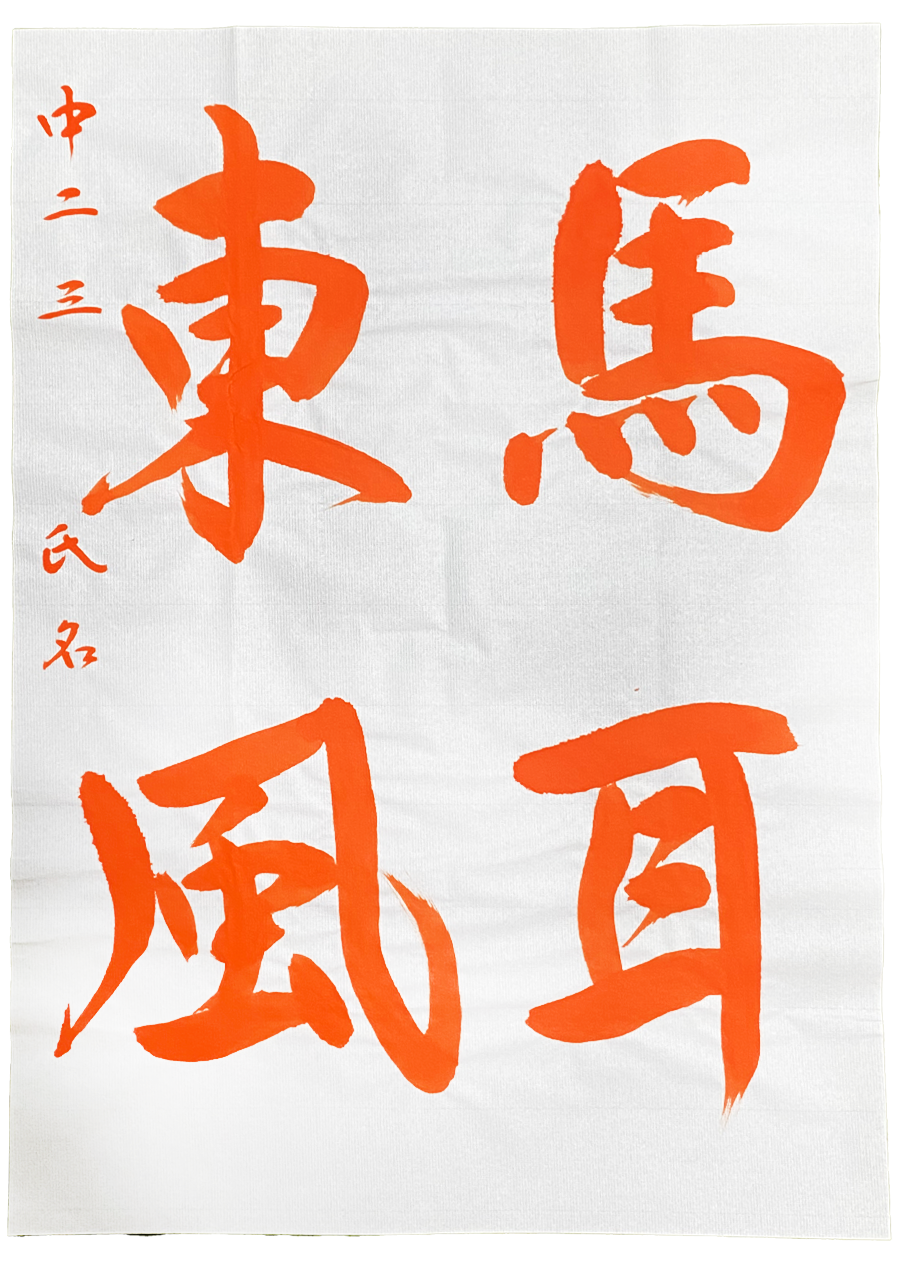 馬耳
東風
中二三 氏名